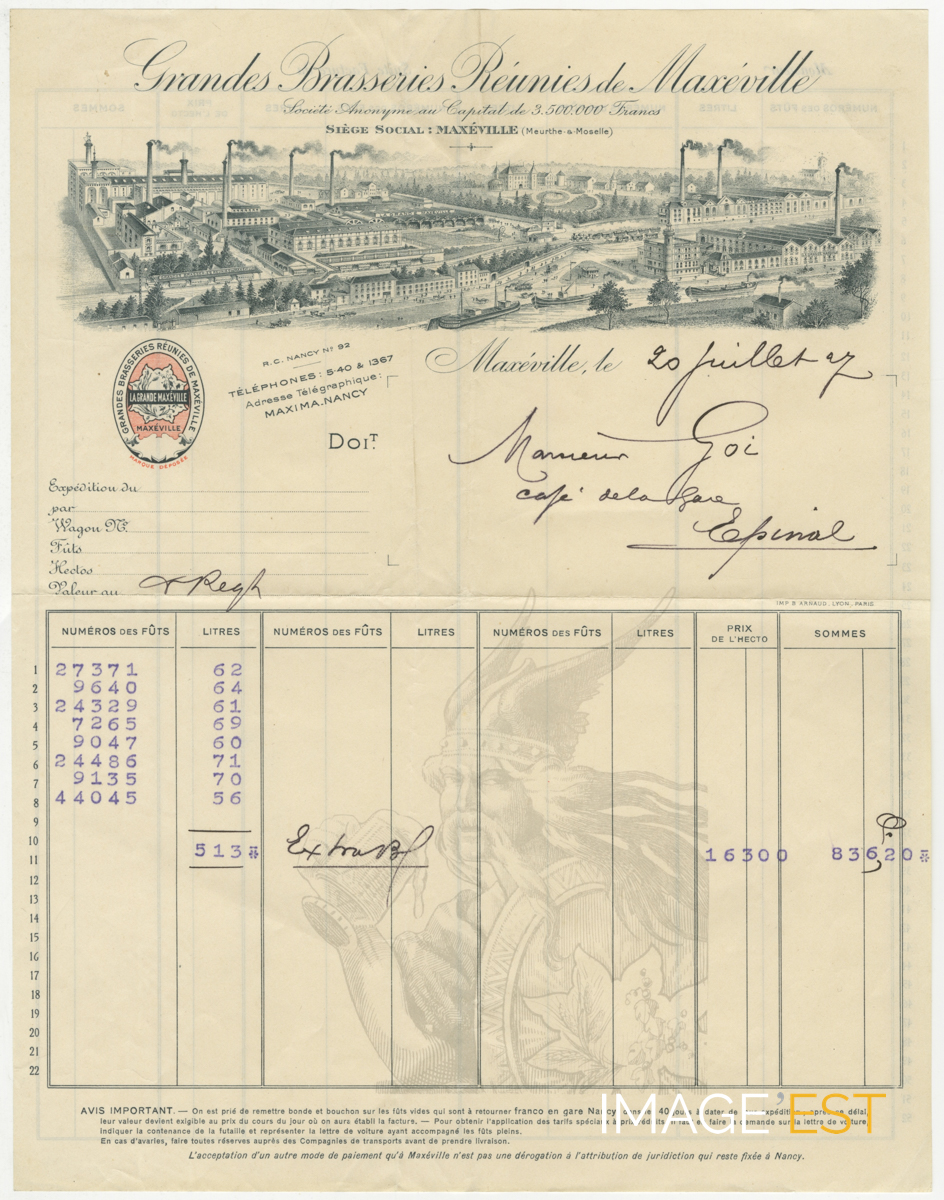 Grandes Brasseries Réunies de Maxéville
Société Anonyme au Capital de 3.500.000 Francs
SIÈGE SOCIAL : MAXÉVILLE (Meurthe-&-Moselle)
GRANDES BRASSERIES RÉUNIES DE MAXÉVILLE
LA GRANDE MAXÉVILLE
MAXÉVILLE
MARQUE DÉPOSÉE
R.C. NANCY Nº 92
TÉLÉPHONES : 5-40 & 1367
Adresse Télégraphique :
MAXIMA. NANCY
Maxéville, le 20 Juillet 27
DOIT
Monsieur Goi
Café de la Gare
Epinal
Expédition du
par
Wagon Nº
Fûts
Hectos
Valeur au
IMP. B. ARNAUD, LYON_PARIS
NUMÉROS DES FÛTS LITRES NUMÉROS DES FÛTS LITRES NUMÉROS DES FÛTS LITRES PRIX DE L'HECTO SOMMES
1 27371 62
2 9640 64
3 24329 61
4 7265 69
5 9047 60
6 24486 71
7 9135 70
8 44045 56
9
10
11 513 Extra 16300 83620
12
13
14
15
16
17
18
19
20
21
22
AVIS IMPORTANT. — On est prié de remettre bonde et bouchon sur les fûts vides qui sont à retourner franco en gare Nancy dans les 40 jours à dater de l'expédition, après ce délai,
leur valeur devient exigible au prix du cours du jour où on aura établi la facture. — Pour obtenir l'application des tarifs spéciaux à prix réduits, il faut faire la demande sur la lettre de voiture,
indiquer la contenance de la futaille et représenter la lettre de voiture ayant accompagné les fûts pleins.
En cas d'avaries, faire toutes réserves auprès des Compagnies de transports avant de prendre livraison.
L'acceptation d'un autre mode de paiement qu'à Maxéville n'est pas une dérogation à l'attribution de juridiction qui reste fixée à Nancy.
IMAGE EST